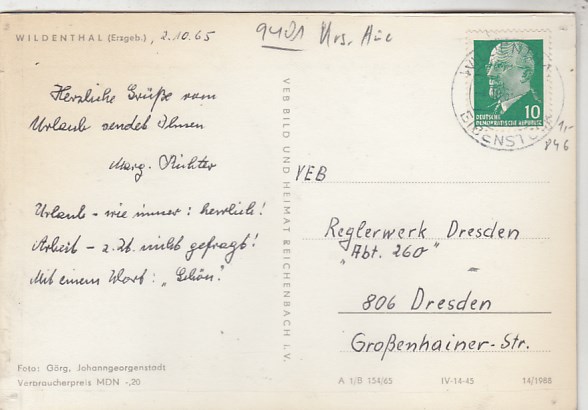 WILDENTHAL (Erzgeb.), 2.10.65
9401 Krs. Aue
Herzliche Grüße vom
Urlaub sendet Ihnen
Marg. Richter
Urlaub - wie immer: herrlich!
Arbeit - z. Zt. nicht gefragt!
Mit einem Wort: „Schön".
Foto: Görg, Johanngeorgenstadt
Verbraucherpreis MDN -,20
VEB BILD UND HEIMAT REICHENBACH I. V.
10
DEUTSCHE
DEMOKRATISCHE REPUBLIK
1,-
P46
VEB
Reglerwerk Dresden
„Abt. 260"
806 Dresden
Großenhainer-Str.
A 1/B 154/65 IV-14-45 14/1988